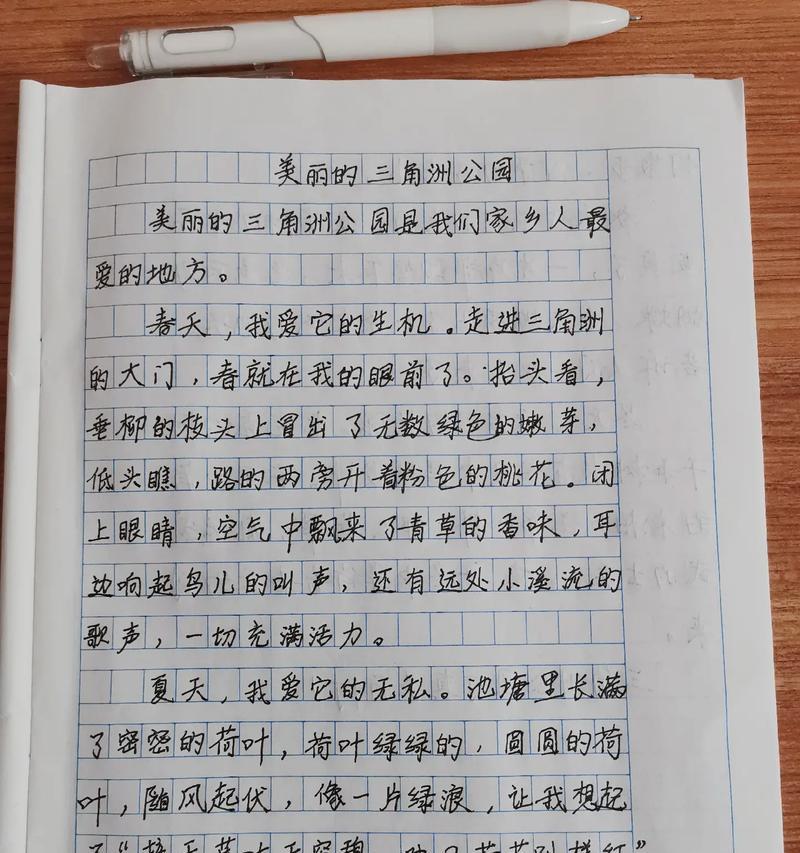 美丽的三角洲公园
美丽的三角洲公园是我们家乡人最
爱的地方。
春天，我爱它的生机。走进三角洲
的大门，春就在我的眼前了。抬头看，
垂柳的枝头上冒出了无数绿色的嫩芽，
低头瞧，路的两旁开着粉色的桃花。闭
上眼睛，空气中飘来了青草的香味，耳
边响起鸟儿的叫声，还有远处小溪流的
歌声，一切充满活力。
夏天，我爱它的无私。池塘里长满
了密密的荷叶，荷叶绿绿的，圆圆的荷
叶，随风起伏，像一片绿浪，让我想起